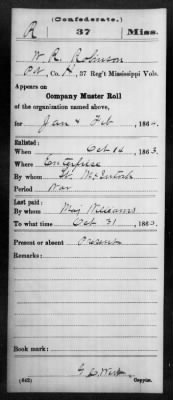 (Confederate.)
R 37 Miss.
W. R. Robinson
Pvt, Co. K, 37 Reg't Mississippi Vols.
Appears on
Company Muster Roll
of the organization named above,
for Jan & Feb, 1864.
Enlisted:
When Oct 14, 1863.
Where Enterprise
By whom Lt. McIntosh
Period War
Last paid:
By whom Maj Williams
To what time Oct 31, 1863.
Present or absent Present
Remarks:
Book mark:
(642) Copyist.